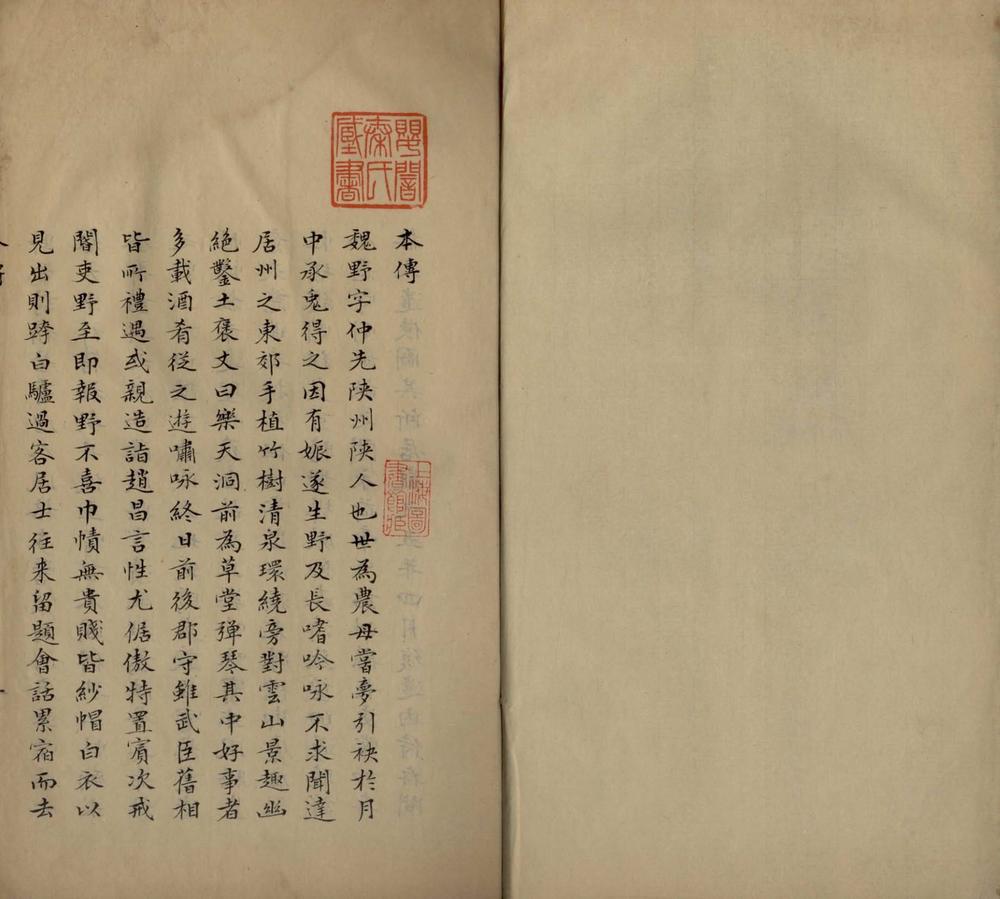 本傳
魏野字仲先陝州陝人也世為農母嘗夢引袂於月
中承兔得之因有娠遂生野及長嗜吟咏不求聞達
居州之東郊手植竹樹清泉環繞旁對雲山景趣幽
絶鑿土袤丈曰樂天洞前為草堂弹琴其中好事者
多載酒肴從之遊嘯咏終日前後郡守雖武臣舊相
皆所禮遇或親造詣趙昌言性尤倨傲特置賓次戒
閽吏野至即報野不喜巾幘無貴賤皆紗帽白衣以
見出則跨白驢過客居士往来留題會話累宿而去
上海圖
書館藏